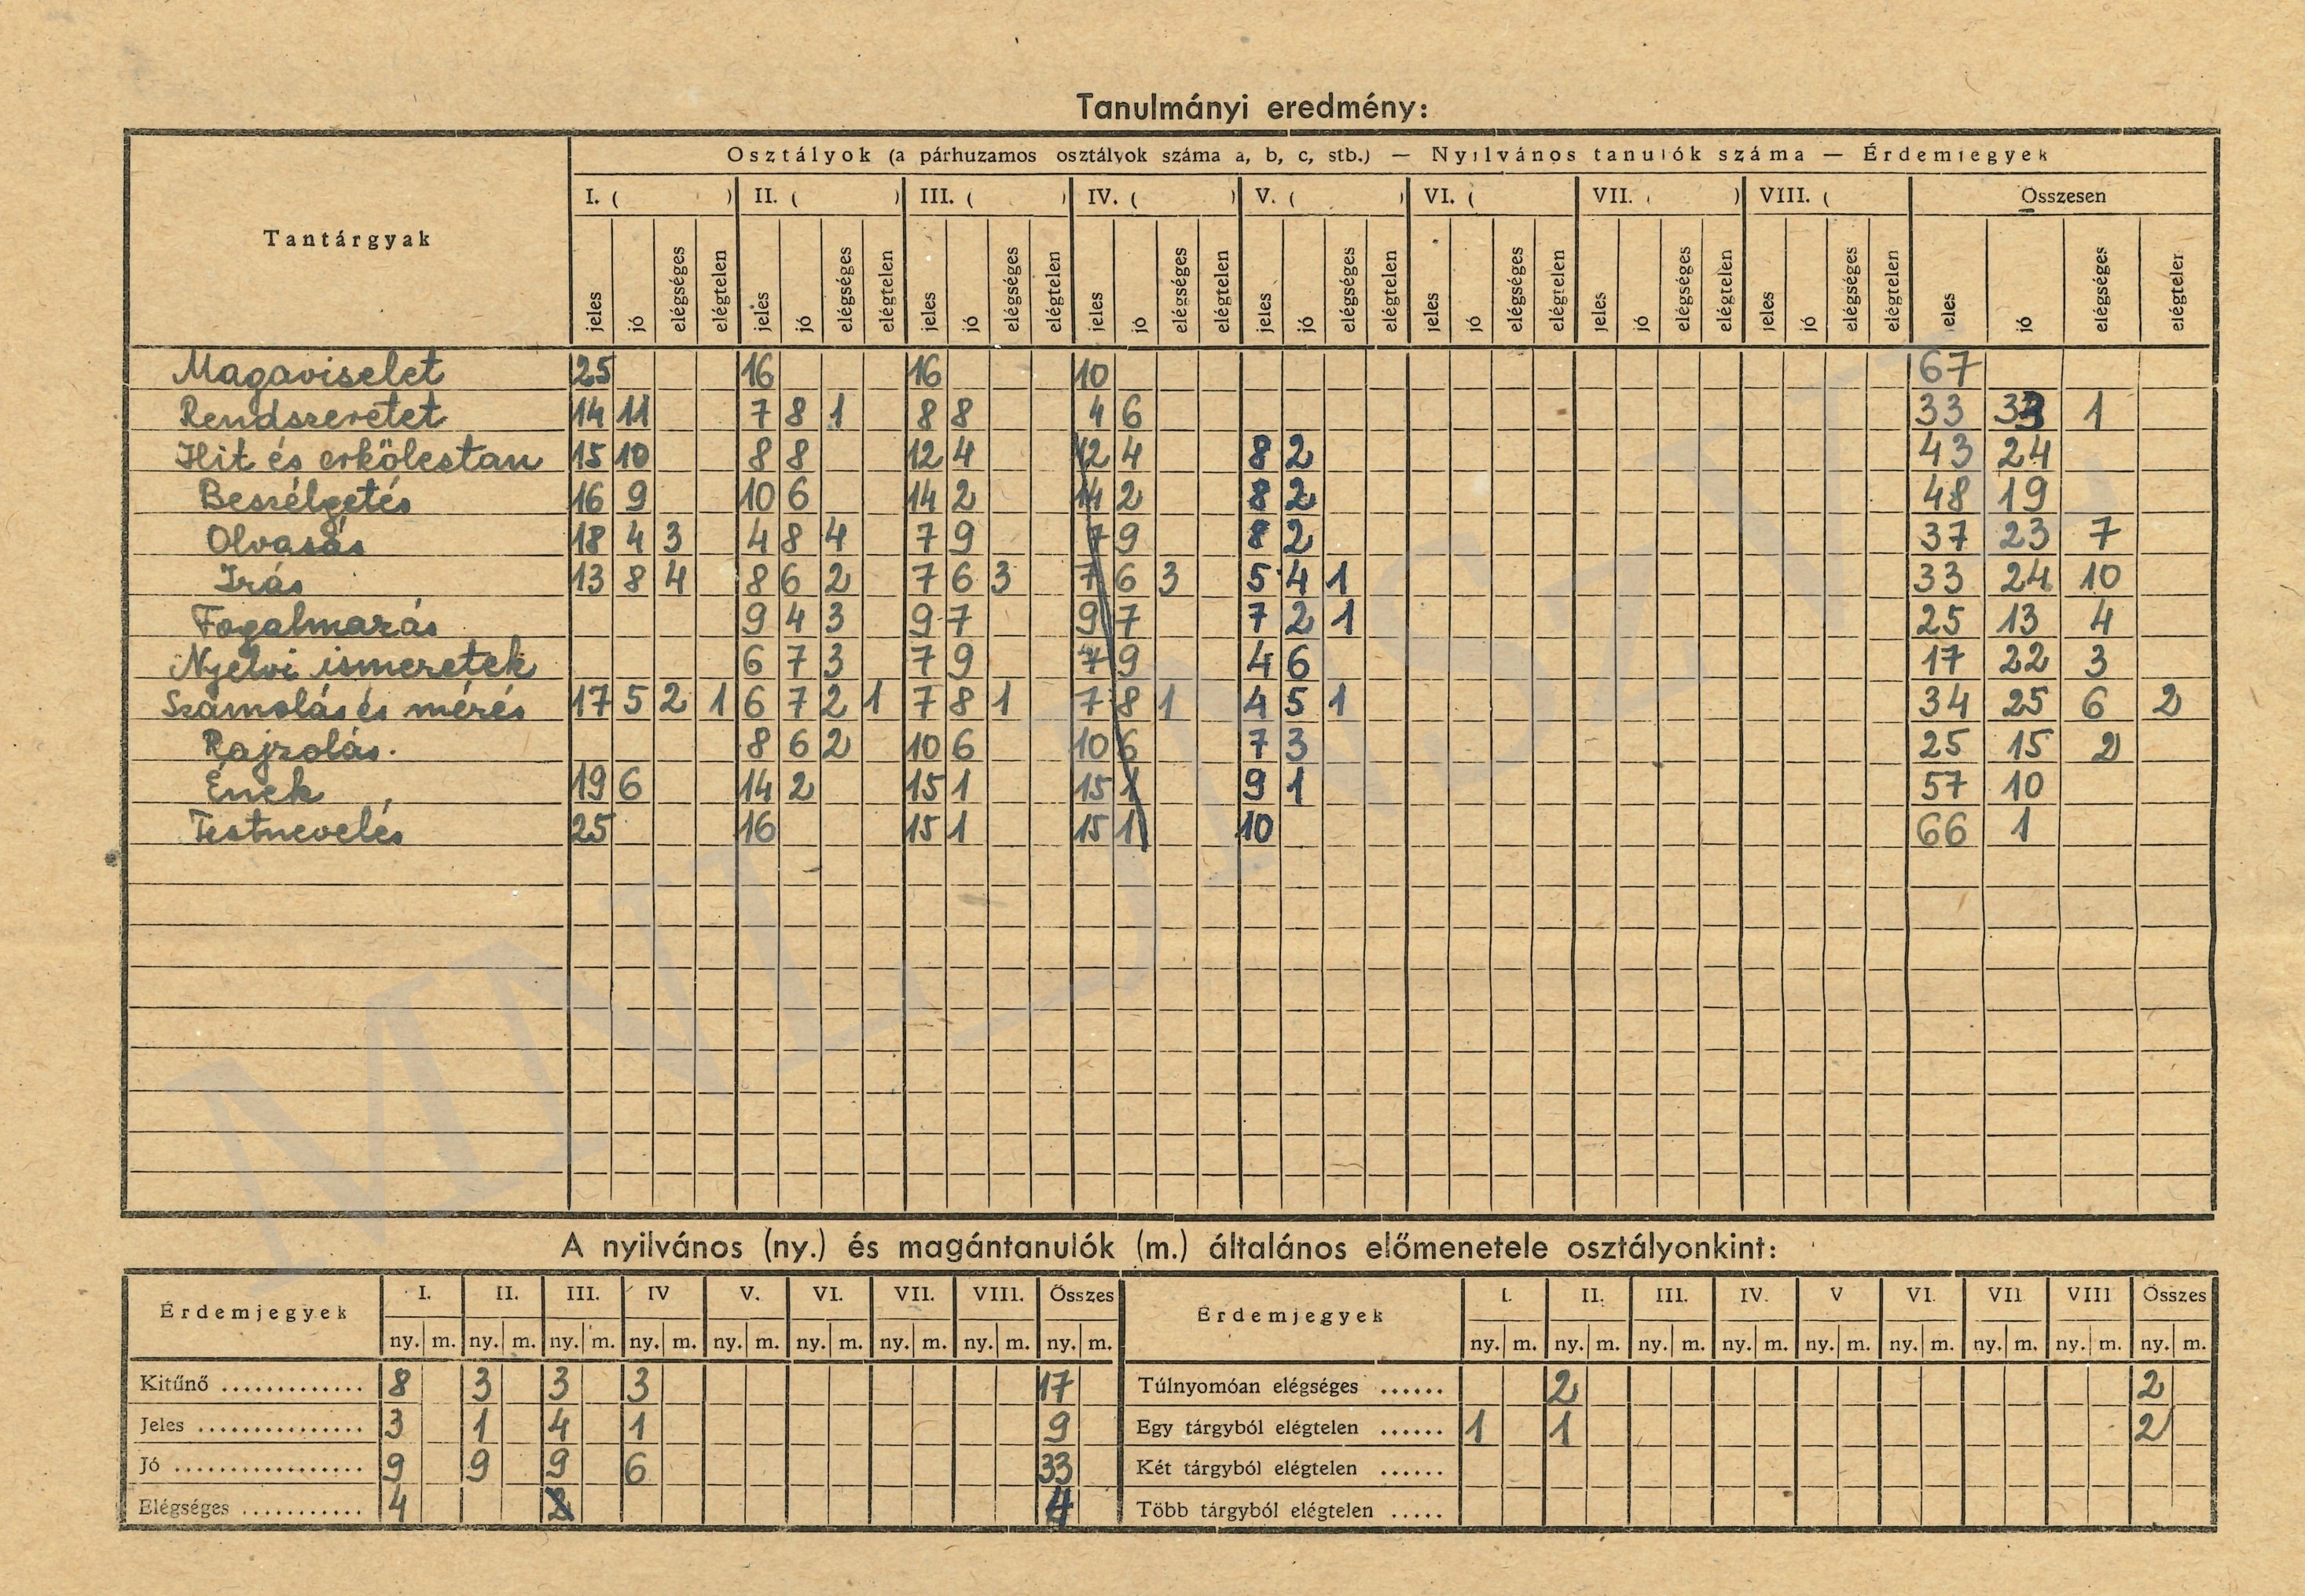 Tanulmányi eredmény:
Osztályok (a párhuzamos osztályok száma a, b, c, stb.) — Nyilvános tanulók száma — Érdemjegyek
Tantárgyak I. ( ) II. ( ) III. ( ) IV. ( ) V. ( ) VI. ( VII. ( ) VIII. ( Összesen
jeles jó elégséges elégtelen jeles jó elégséges elégtelen jeles jó elégséges elégtelen jeles jó elégséges elégtelen jeles jó elégséges elégtelen jeles jó elégséges elégtelen jeles jó elégséges elégtelen jeles jó elégséges elégtelen eles jó elégséges elégteler
Magaviselet 25 16 16 10 67
Rendszeretet 14 11 7 8 1 8 8 4 6 33 33 1
Hit és erkölcstan 15 10 8 8 12 4 12 4 8 2 43 24
Beszélgetés 16 9 10 6 14 2 14 2 8 2 48 19
Olvasás 18 4 3 4 8 4 7 9 7 9 8 2 37 23 7
Irás 13 8 4 8 6 2 7 6 3 7 6 3 5 4 1 33 24 10
Fogalmazás 9 4 3 9 7 9 7 7 2 1 25 13 4
Nyelvi ismeretek 6 7 3 7 9 7 9 4 6 17 22 3
Számolás és mérés 17 5 2 1 6 7 2 1 7 8 1 7 8 1 4 5 1 34 25 6 2
Rajzolás. 8 6 2 10 6 10 6 7 3 25 15 2
Ének 19 6 14 2 15 1 15 1 9 1 57 10
Testnevelés 25 16 15 1 15 1 10 66 1
A nyilvános (ny.) és magántanulók (m.) általános előmenetele osztályonkint:
Érdemjegyek I. II. III. IV V. VI. VII. VIII. Összes Érdemjegyek I. II. III. IV. V VI. VII VIII Összes
ny. m. ny. m. ny. m. ny. m. ny. m. ny. m. ny. m. ny. m. ny. m. ny. m. ny. m. ny. m. ny. m. ny. m. ny. m. ny. m. ny. m. ny. m.
Kitűnő ............. 8 3 3 3 17 Túlnyomóan elégséges ...... 2 2
Jeles ............... 3 1 4 1 9 Egy tárgyból elégtelen ...... 1 1 2
Jó ................. 9 9 9 6 33 Két tárgyból elégtelen ......
Elégséges ........... 4 4 Több tárgyból elégtelen .....